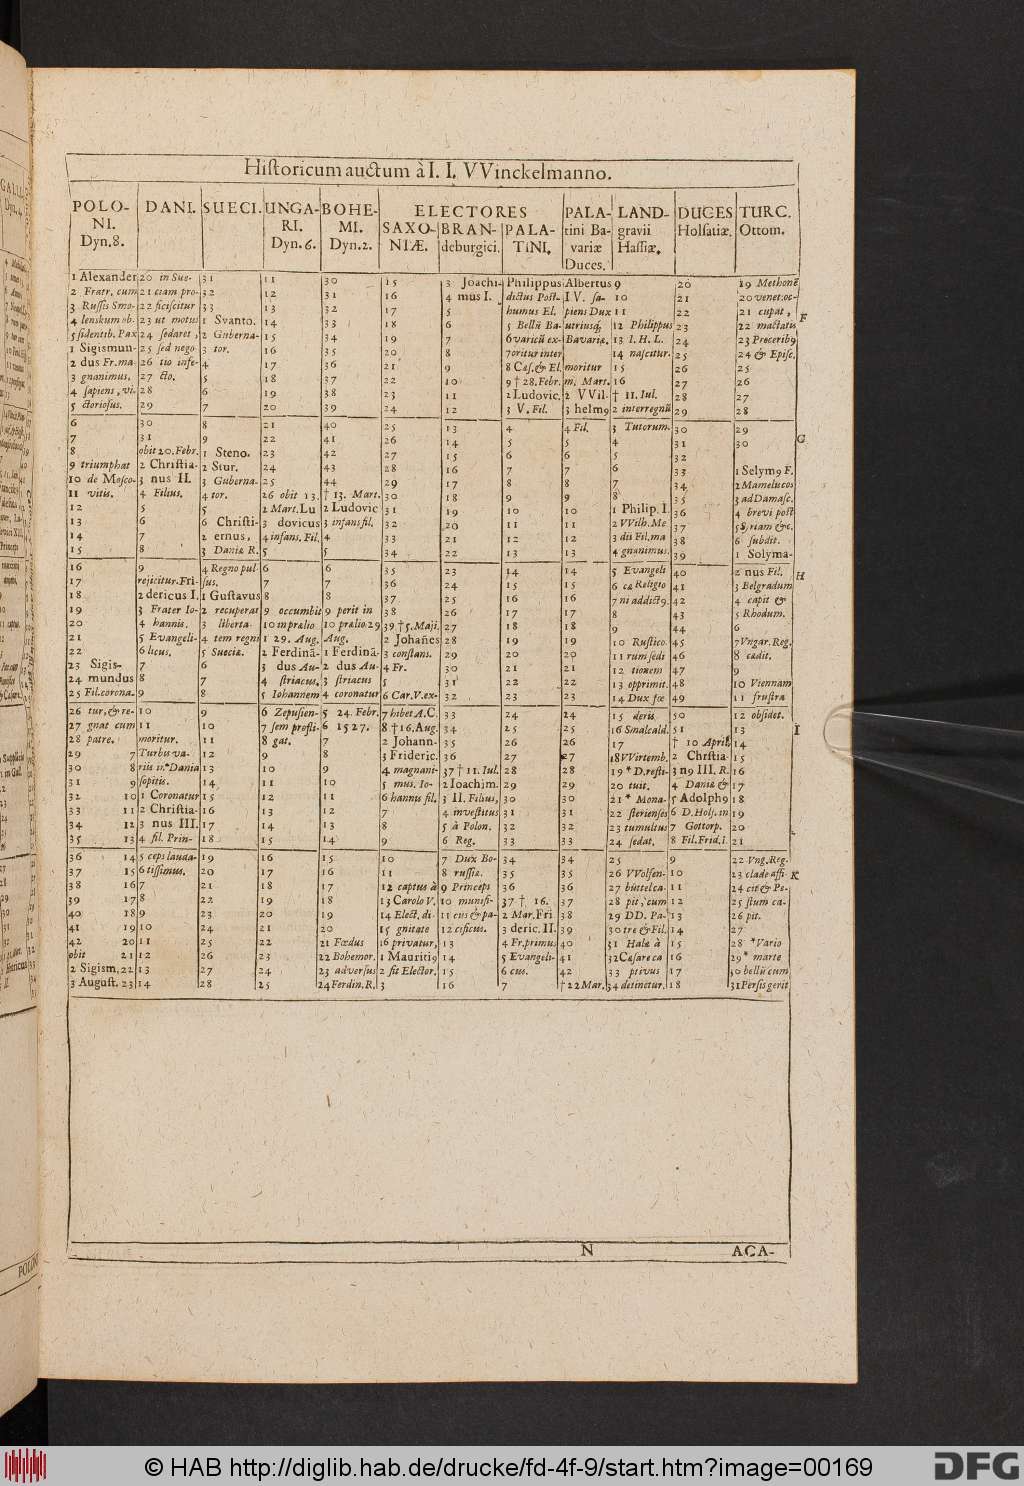 Historicum auctum à I. I. VVinckelmanno.
POLONI. Dyn.8. DANI. SUECI. UNGARI. Dyn.6. BOHEMI. Dyn.2. ELECTORES SAXONIÆ. BRANdeburgici. PALATINI. PALAtini Bavariæ Duces. LANDgravii Hassiæ. DUCES Holsatiæ. TURC. Ottom.
1 Alexander 20 in Sue- 31 11 30 15 3 Joachi- Philippus Albertus 9 20 19 Methonē
2 Fratr. cum 21 ciam pro- 32 12 31 16 4 mus I. dictus Post- IV. sa- 10 21 20 venet:oc-
3 Russis Smo- 22 ficiscitur 33 13 32 17 5 humus El. piens Dux 11 22 21 cupat,
4 lenskum ob- 23 ut motus 1 Svanto. 14 33 18 6 5 Bellū Ba- utriusq; 12 Philippus 23 22 mactatis
5 sidentib. Pax 24 sedaret, 2 Guberna- 15 34 19 7 6 varicū ex- Bavariæ. 13 I. H. L. 24 23 Precerib9
1 Sigismun- 25 sed nego- 3 tor. 16 35 20 8 7 oritur inter 14 nascitur. 25 24 & Episc.
2 dus Fr. ma- 26 tio infe- 4 17 36 21 9 8 Cæs. & El. moritur 15 26 25
3 gnanimus. 27 cto. 5 18 37 22 10 9 † 28. Febr. m. Mart. 16 27 26
4 sapiens, vi- 28 6 19 38 23 11 2 Ludovic. 2 VVil- † 11. Iul. 28 27
5 ctoriosus. 29 7 20 39 24 12 3 V. Fil. 3 helm9 2 interregnū 29 28
6 30 8 21 40 25 13 4 4 Fil. 3 Tutorum. 30 29
7 31 9 22 41 26 14 5 5 4 31 30
8 obit 20. Febr. 1 Steno. 23 42 27 15 6 6 5 32
9 triumphat 2 Christia- 2 Stur. 24 43 28 16 7 7 6 33 1 Selym9 F.
10 de Mosco- 3 nus II. 3 Guberna- 25 44 29 17 8 8 7 34 2 Mamelucos
11 vitis. 4 Filius. 4 tor. 26 obit 13. † 13. Mart. 30 18 9 9 8 35 3 ad Damasc.
12 5 5 2 Mart. Lu 2 Ludovic 31 19 10 10 1 Philip. I. 36 4 brevi post
13 6 6 Christi- 3 dovicus 3 infans fil. 32 20 11 11 2 VVilh. Me 37 5 Syriam &c.
14 7 2 ernus, 4 infans. Fil. 4 33 21 12 12 3 dii Fil. ma 38 6 subdit.
15 8 3 Daniæ R. 5 5 34 22 13 13 4 gnanimus. 39 1 Solyma-
16 9 4 Regno pul- 6 6 35 23 14 14 5 Evangeli 40 2 nus Fil.
17 rejicitur. Fri- sus. 7 7 36 24 15 15 6 cæ Religio 41 3 Belgradum
18 2 dericus I. 1 Gustavus 8 8 37 25 16 16 7 ni addict9. 42 4 capit &
19 3 Frater Io- 2 recuperat 9 occumbit 9 perit in 38 26 17 17 8 43 5 Rhodum.
20 4 hannis. 3 liberta- 10 in prælio 10 prælio 29 39 † 5. Maji. 27 18 18 9 44 6
21 5 Evangeli- 4 tem regni 1 29. Aug. Aug. 2 Johañes 28 19 19 10 Rustico. 45 7 Vngar. Reg.
22 6 licus. 5 Sueciæ. 2 Ferdinā- 1 Ferdinā- 3 constans. 29 20 20 11 rum sedi 46 8 cædit.
23 Sigis- 7 6 3 dus Au- 2 dus Au- 4 Fr. 30 21 21 12 tionem 47 9
24 mundus 8 7 4 striacus. 3 striacus 5 31 22 22 13 opprimit. 48 10 Viennam
25 Fil. corona. 9 8 5 Iohannem 4 coronatur 6 Car. V. ex- 32 23 23 14 Dux fœ 49 11 frustra
26 tur, & re- 10 9 6 Zepusien- 5 24. Febr. 7 hibet A. C. 33 24 24 15 deris 50 12 obsidet.
27 gnat cum 11 10 7 sem profli- 6 1527. 8 † 16. Aug. 34 25 25 16 Smalcald. 51 13
28 patre. moritur. 11 8 gat. 7 2 Johann- 35 26 26 17 † 10 April. 14
29 7 Turbis va- 12 9 8 3 Frideric. 36 27 27 18 VVirtemb. 2 Chrstia- 15
30 8 riis in * Dania 13 10 9 4 magnani- 37 † 11. Iul. 28 28 19 * D. resti- 3 n9 III. R. 16
31 9 sopitis. 14 11 10 5 mus. Io- 2 Joachim. 29 29 20 tuit. 4 Daniæ & 17
32 10 1 Coronatur 15 12 11 6 hannis fil. 3 II. Filius, 30 30 21 * Mona- 5 Adolph9 18
33 11 2 Christia- 16 13 12 7 4 investitus 31 31 22 sterienses 6 D. Hols. in 19
34 12 3 nus III. 17 14 13 8 5 à Polon. 32 32 23 tumultus 7 Gottorp. 20
35 13 4 fil. Prin- 18 15 14 9 6 Reg. 33 33 24 sedat. 8 Fil. Frid. I. 21
36 14 5 ceps lauda- 19 16 15 10 7 Dux Bo- 34 34 25 9 22 Vng. Reg.
37 15 6 tissimus. 20 17 16 11 8 russiæ. 35 35 26 VVolfen- 10 23 clade affi
38 16 7 21 18 17 12 captus à 9 Princeps 36 36 27 büttelca- 11 24 cit & Pe-
39 17 8 22 19 18 13 Carolo V. 10 munifi- 37 † 16. 37 28 pit, cum 12 25 stum ca-
40 18 9 23 20 19 14 Elect. di- 11 cus & pa- 2 Mar. Fri 38 29 DD. Pa- 13 26 pit.
41 19 10 24 21 20 15 gnitate 12 cificus. 3 deric. II. 39 30 tre & Fil. 14 27
42 20 11 25 22 21 Fœdus 16 privatur, 13 4 Fr. primus 40 31 Halæ à 15 28 * Vario
obit 21 12 26 23 22 Bohemor. 1 Mauriti9 14 5 Evangeli- 41 32 Cæsare ca 16 29 * marte
2 Sigism. 22 13 27 24 23 adversus 2 fit Elector. 15 6 cus. 42 33 ptivus 17 30 bellū cum
3 August. 23 14 28 25 24 Ferdin. R. 3 16 7 † 22 Mar. 34 detinetur. 18 31 Persis gerit
F
G
H
I
K
N ACA-
© HAB http://diglib.hab.de/drucke/fd-4f-9/start.htm?image=00169
DFG